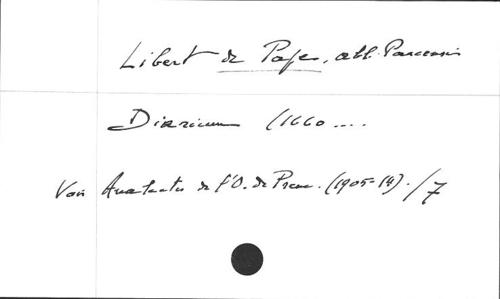 Libert de Pape, abb. Parcensis
Diarium (1660 ....
Voir Analectes de l'O. de Prem. (1905-14). /7